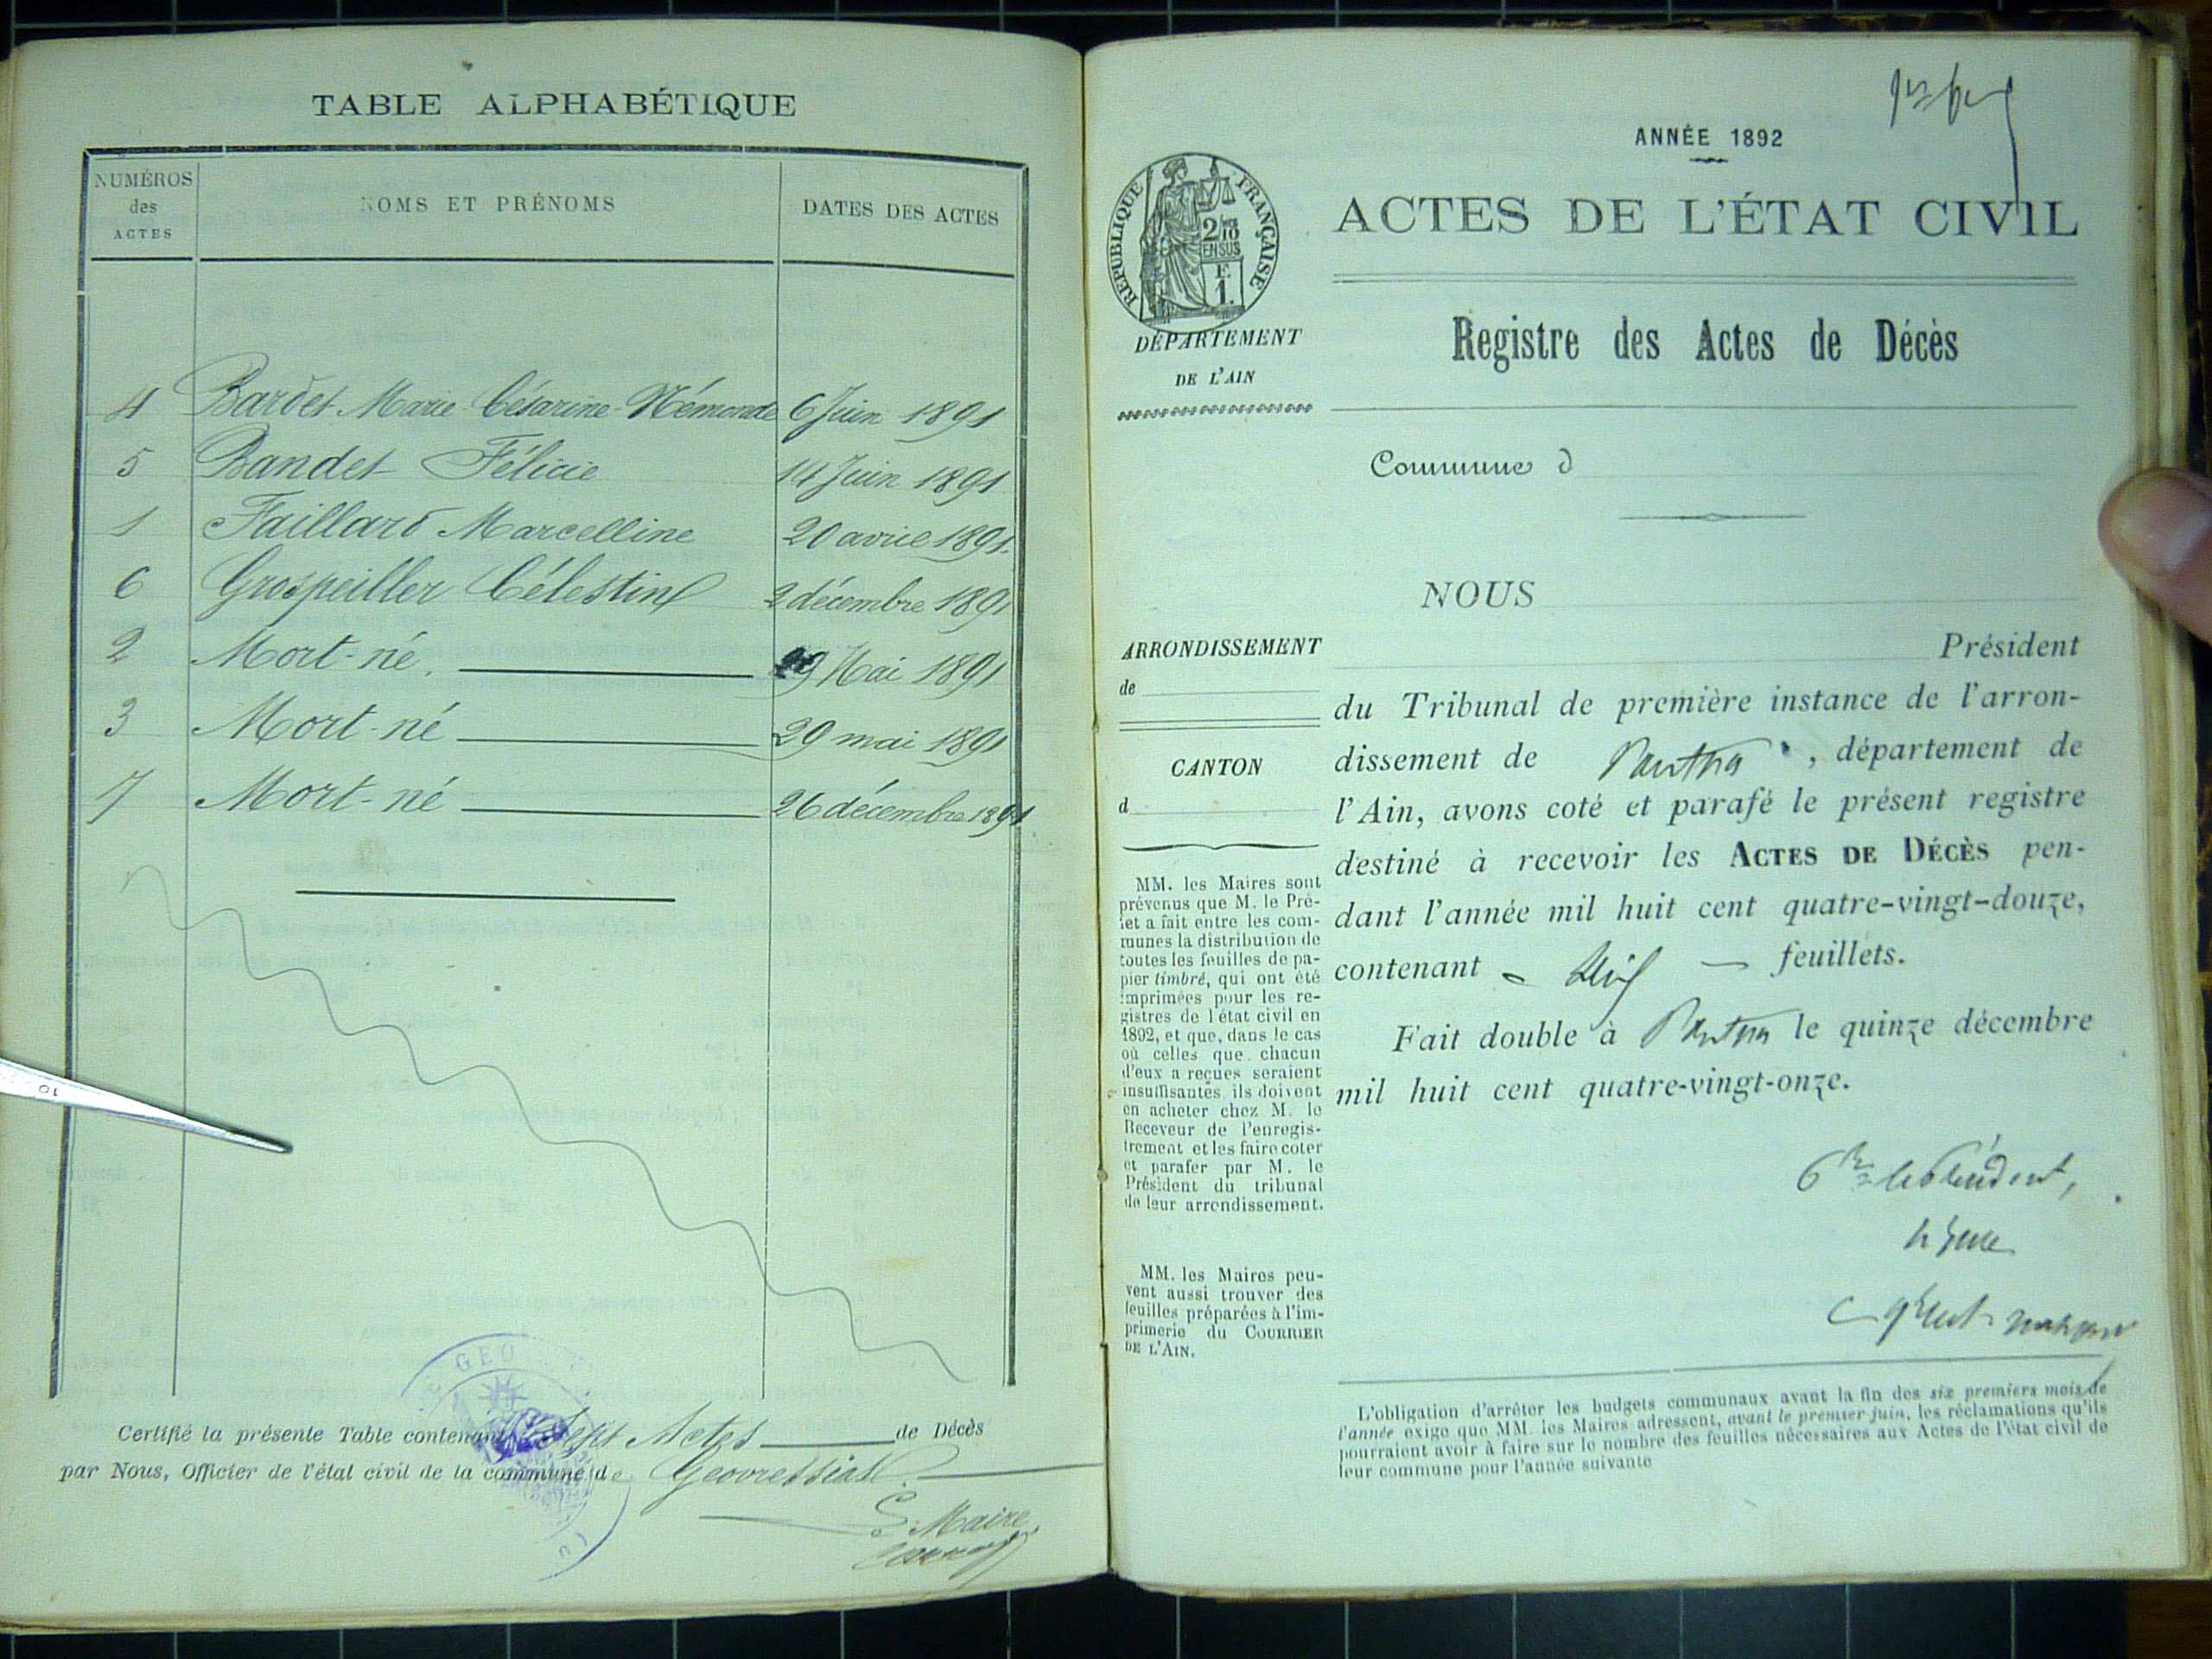 TABLE ALPHABÉTIQUE
NUMÉROS
des
ACTES
NOMS ET PRÉNOMS
DATES DES ACTES
4 Bardet Marie Césarine Némonde 6 Juin 1891
5 Bandet Félicie 14 Juin 1891
1 Faillard Marcelline 20 avril 1891
6 Grospeiller Célestine 2 décembre 1891
2 Mort-né Mai 1891
3 Mort-né 29 mai 1891
7 Mort-né 26 décembre 1891
Certifié la présente Table contenant Sept Actes de Décès
par Nous, Officier de l'état civil de la commune de Geovressiat
Maire
GEO
ANNÉE 1892
RÉPUBLIQUE FRANÇAISE
2/10
EN SUS
F.
1.
ACTES DE L'ÉTAT CIVIL
Registre des Actes de Décès
DÉPARTEMENT
DE L'AIN
Commune d
NOUS
ARRONDISSEMENT
de
CANTON
d
Président
du Tribunal de première instance de l'arron-
dissement de Nantua, département de
l'Ain, avons coté et parafé le présent registre
destiné à recevoir les ACTES DE DÉCÈS pen-
dant l'année mil huit cent quatre-vingt-douze,
contenant feuillets.
Fait double à Nantua le quinze décembre
mil huit cent quatre-vingt-onze.
MM. les Maires sont
prévenus que M. le Pré-
fet a fait entre les com-
munes la distribution de
toutes les feuilles de pa-
pier timbré, qui ont été
imprimées pour les re-
gistres de l'état civil en
1892, et que, dans le cas
où celles que chacun
d'eux a reçues seraient
insuffisantes, ils doivent
en acheter chez M. le
Receveur de l'enregis-
trement et les faire coter
et parafer par M. le
Président du tribunal
de leur arrondissement.
MM. les Maires peu-
vent aussi trouver des
feuilles préparées à l'im-
primerie du COURRIER
DE L'AIN.
L'obligation d'arrêter les budgets communaux avant la fin des six premiers mois de
l'année exige que MM. les Maires adressent, avant le premier juin, les réclamations qu'ils
pourraient avoir à faire sur le nombre des feuilles nécessaires aux Actes de l'état civil de
leur commune pour l'année suivante
10